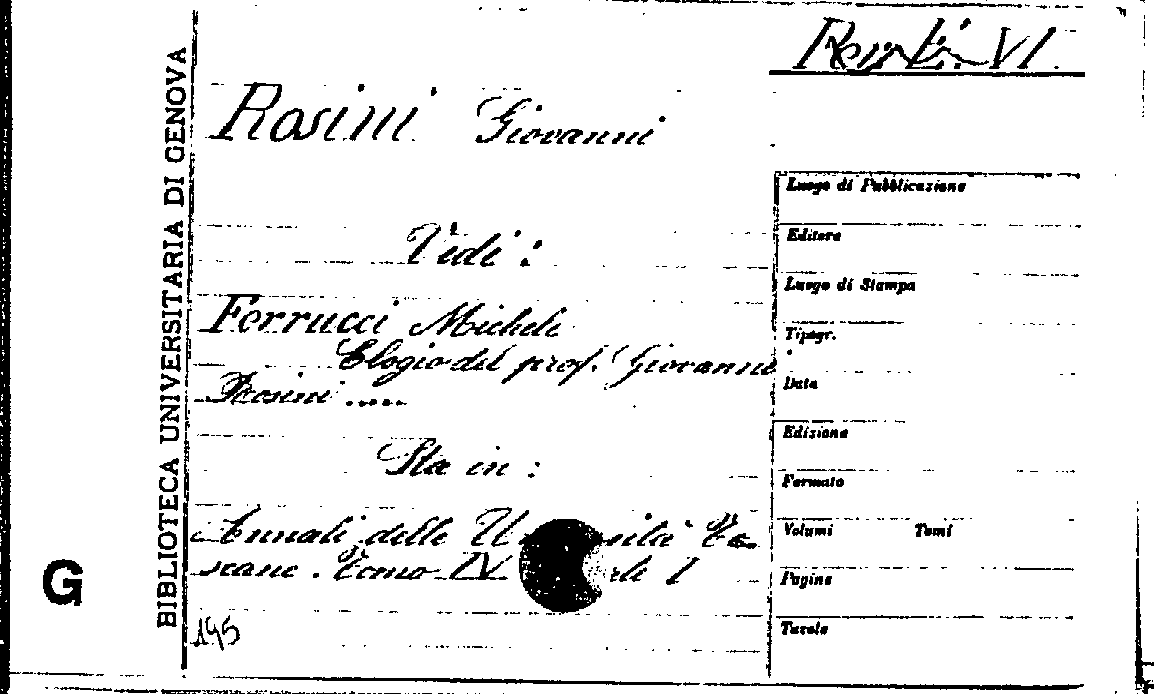 VI
Rosini Giovanni
Vedi :
Ferrucci Michele
Elogio del prof. Giovanni
Rosini .....
Sta in :
Annali delle To-
scane. Tomo IV. I
195
BIBLIOTECA UNIVERSITARIA DI GENOVA
G
Luogo di Pubblicazione
Editore
Luogo di Stampa
Tipogr.
Data
Edizione
Formato
Volumi Tomi
Pagine
Tavole